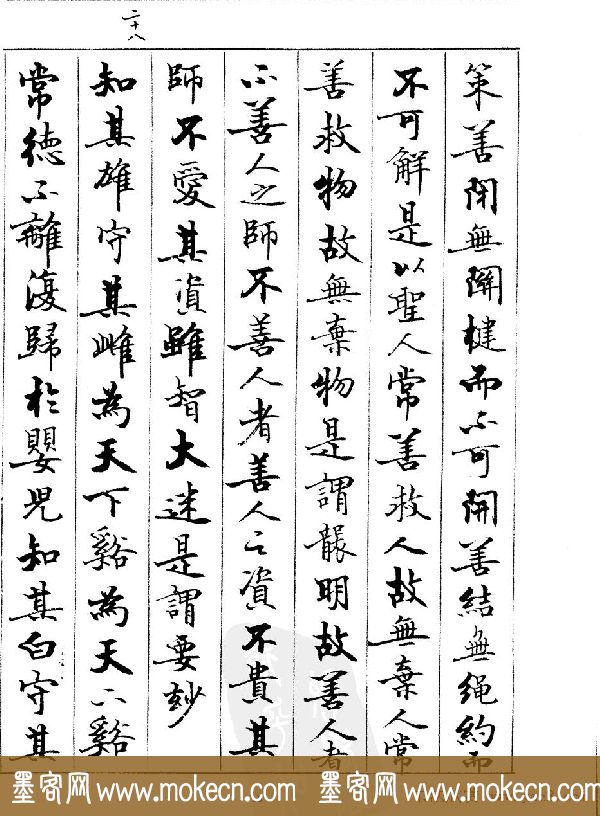 策善閉無關楗而不可開善結無绳約而
不可解是以聖人常善救人故無棄人常
善救物故無棄物是謂襲明故善人者
不善人之師不善人者善人之資不貴其
師不愛其資雖智大迷是謂要妙
二十八
知其雄守其雌為天下谿為天下谿
常德不離復歸於嬰児知其白守其
墨客网 www.mokecn.com 墨客网 www.mokecn.com